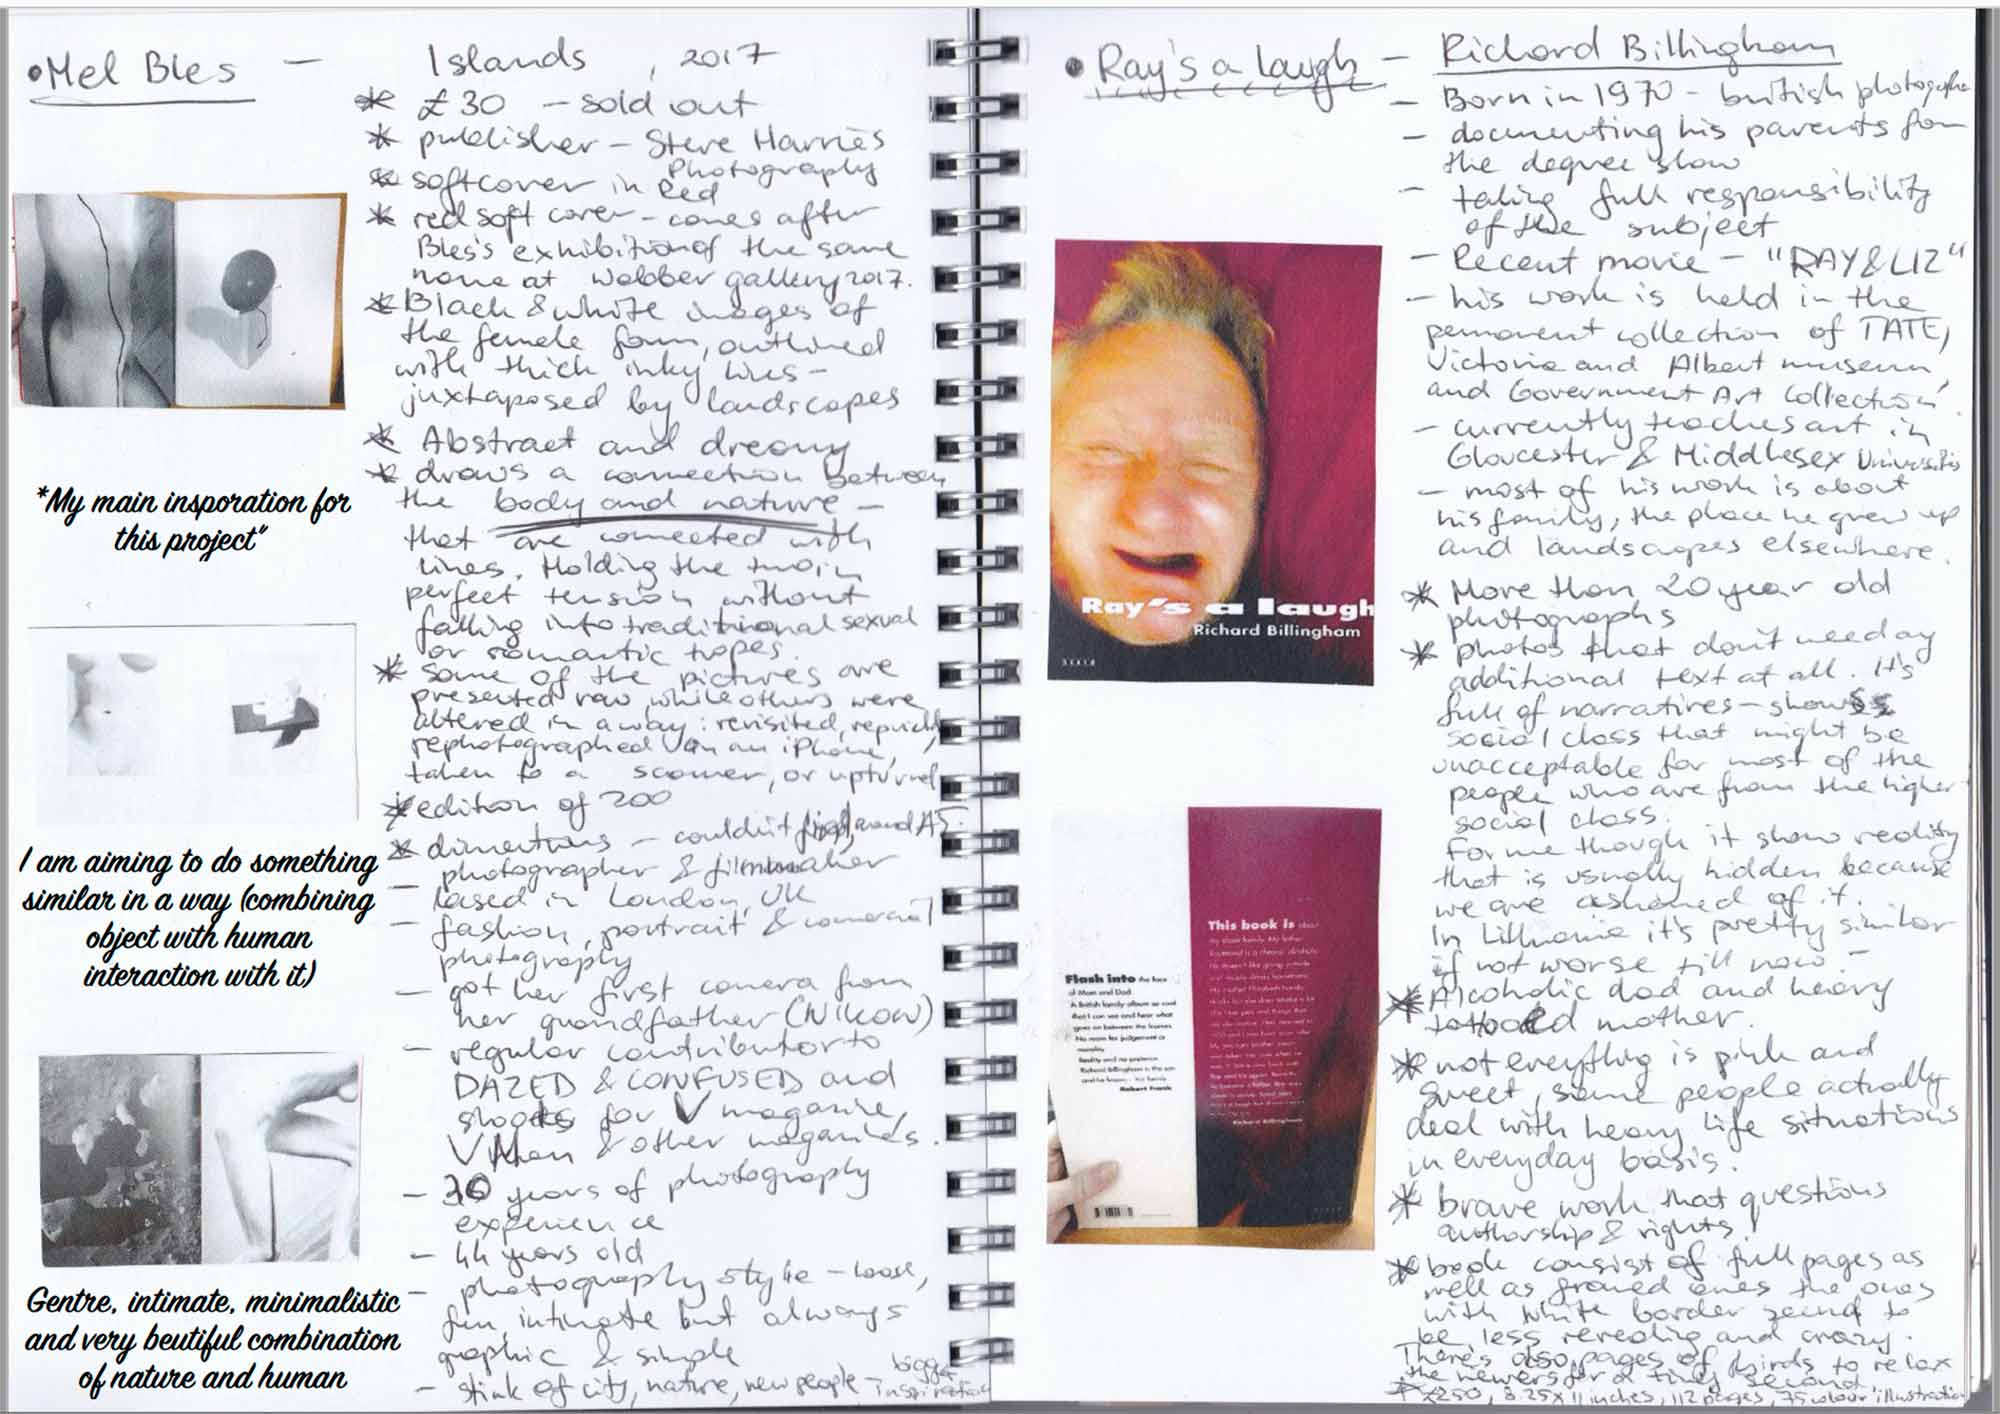 •Mel Bles — Islands, 2017
* £30 — sold out
* publisher — Steve Harries
Photography
* softcover in Red
* red soft cover — comes after
Bles's exhibition of the same
name at Webber gallery 2017.
* Black & white images of
the female form, outlined
with thick inky lines —
juxtaposed by landscapes
* Abstract and dreamy
* draws a connection between
the body and nature —
that are connected with
lines. Holding the two in
perfect tension without
falling into traditional sexual
or romantic tropes.
* some of the pictures are
presented raw while others were
altered in a way: revisited,
rephotographed on an iPhone,
taken to a scanner, or upturned
* edition of 200
* dimentions — couldn't find, around A5.
— photographer & filmmaker
— based in London, UK
— fashion, portrait & comercial
photography
— got her first camera from
her grandfather (Nikon)
— regular contributor to
DAZED & CONFUSED and
shoots for V magazine,
VMan & other magazines.
— 20 years of photography
experience
— 44 years old
— photography style — loose,
fun, intimate but always
graphic & simple
— stink of city, nature, new people — bigger
inspiration
*My main insporation for
this project"
I am aiming to do something
similar in a way (combining
object with human
interaction with it)
Gentre, intimate, minimalistic
and very beutiful combination
of nature and human
• Ray's a laugh — Richard Billingham
— Born in 1970 — british photographer
— documenting his parents for
the degree show
— taking full responsibility
of the subject
— Recent movie — "RAY & LIZ"
— his work is held in the
permanent collection of TATE,
Victoria and Albert museum
and Government Art Collection.
— currently teaches art in
Gloucester & Middlesex Universities
— most of his work is about
his family, the place he grew up
and landscapes elsewhere.
* More than 20 year old
photographs
* photos that don't need any
additional text at all. It's
full of narratives — shows
social class that might be
unacceptable for most of the
people who are from the higher
social class.
For me though it show reality
that is usually hidden because
we are ashamed of it.
In Lithuania it's pretty similar
if not worse till now. —
* Alcoholic dad and heavy
tattooed mother.
* not everything is pink and
sweet, some people actually
deal with heavy life situations
in everyday basis.
* brave work that questions
authorship & rights!
* book consist of full pages as
well as framed ones the ones
with white border seend to
be less revealing and crazy.
There's also pages of birds to relax
the viewers for a tiny second
* £250, 8.25x11 inches, 112 pages, 75 colour illustration
Ray's a laugh
Richard Billingham
SCALO
Flash into the face
of Mom and Dad
A British family album so cool
that I can see and hear what
goes on between the frames.
No room for judgement or
morality.
Reality and no pretence
Richard Billingham is the son
and he knows — his family.
Robert Frank
This book is about
my close family. My father
Raymond is a chronic alcoholic.
He doesn't like going outside
Richard Billingham